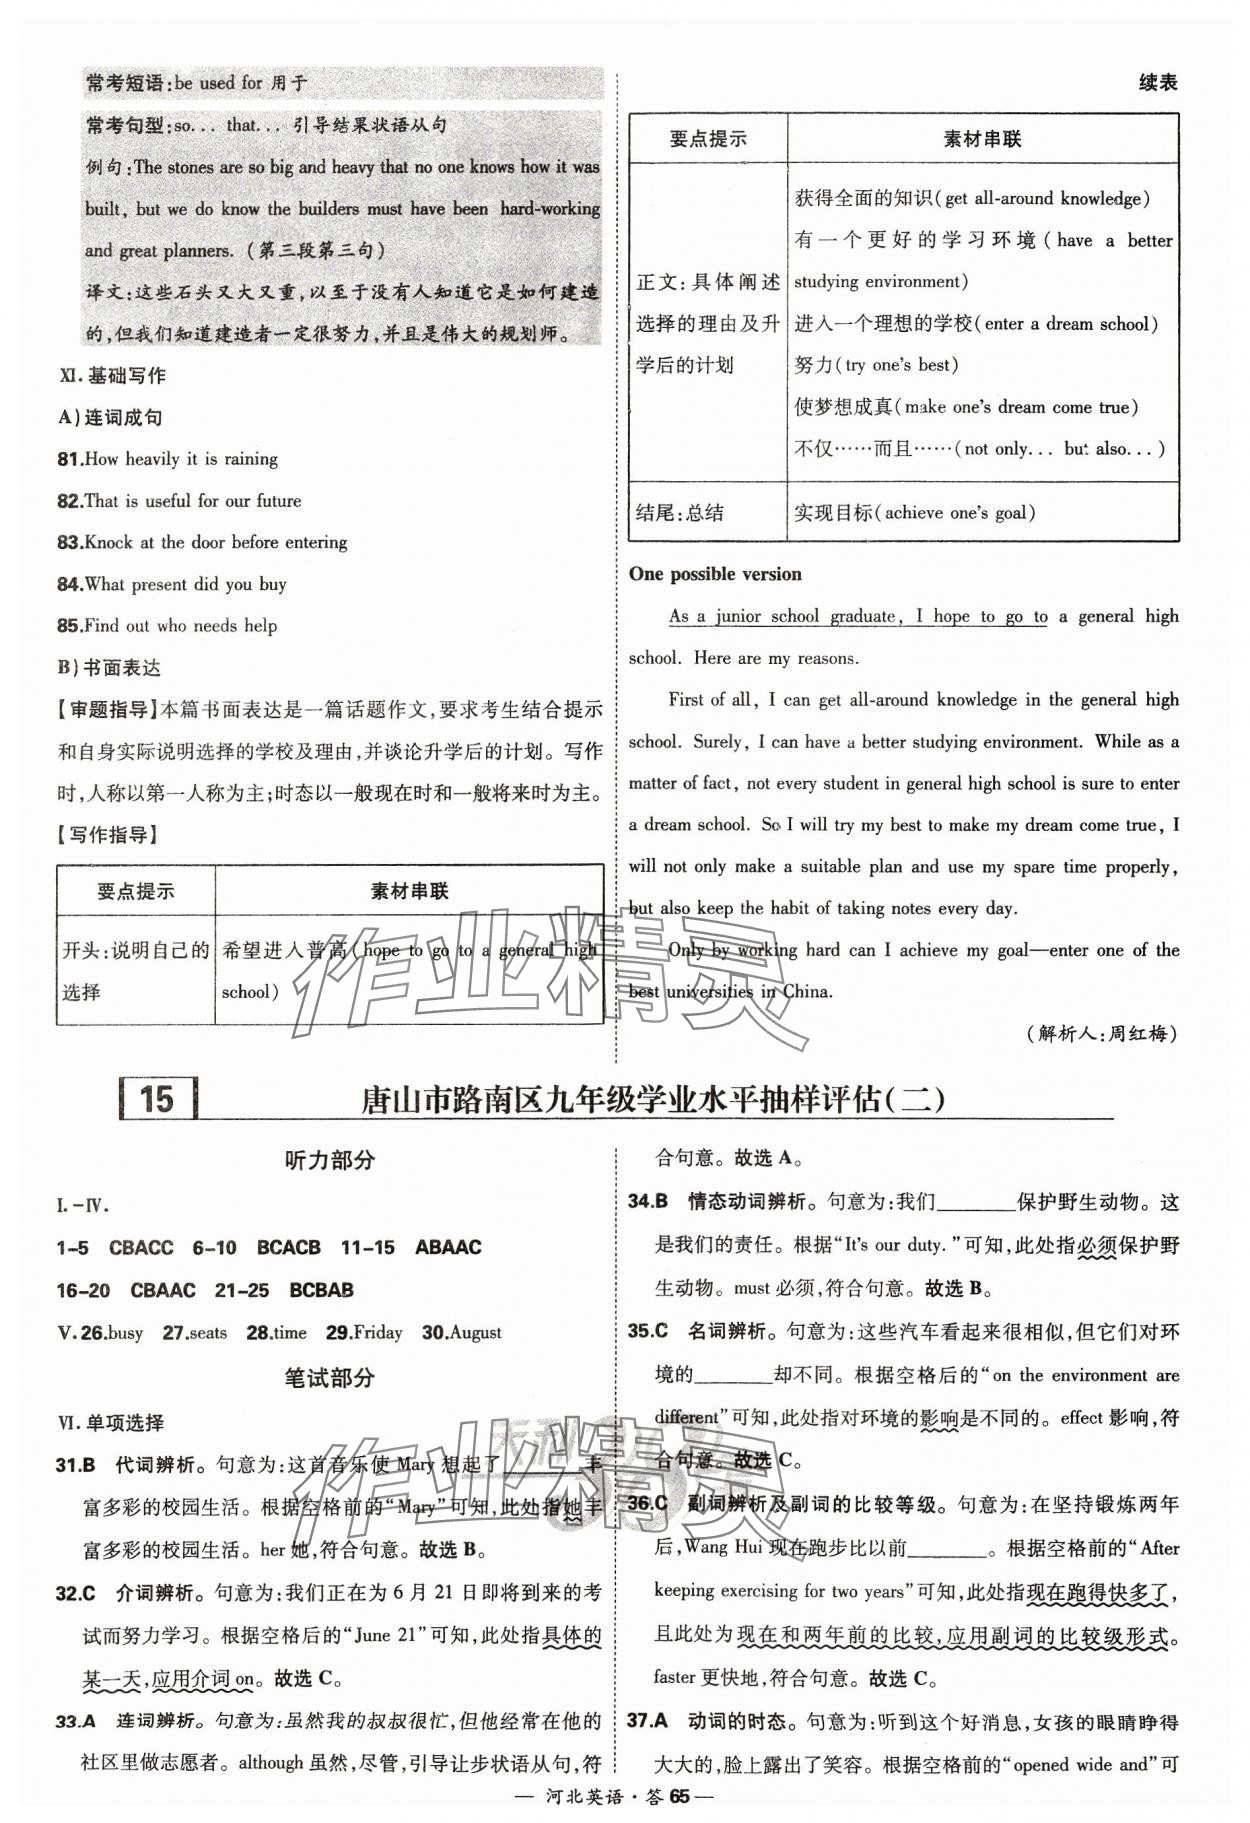 常考短语:be used for 用于
常考句型:so... that... 引导结果状语从句
例句:The stones are so big and heavy that no one knows how it was
built, but we do know the builders must have been hard-working
and great planners.(第三段第三句)
译文:这些石头又大又重,以至于没有人知道它是如何建造
的,但我们知道建造者一定很努力,并且是伟大的规划师。
Ⅺ.基础写作
A)连词成句
81.How heavily it is raining
82.That is useful for our future
83.Knock at the door before entering
84.What present did you buy
85.Find out who needs help
B)书面表达
【审题指导】本篇书面表达是一篇话题作文,要求考生结合提示
和自身实际说明选择的学校及理由,并谈论升学后的计划。写作
时,人称以第一人称为主;时态以一般现在时和一般将来时为主。
【写作指导】
要点提示 素材串联
开头:说明自己的 希望进入普高(hope to go to a general high
选择 school)
续表
要点提示 素材串联
获得全面的知识(get all-around knowledge)
有一个更好的学习环境(have a better
正文:具体阐述 studying environment)
选择的理由及升 进入一个理想的学校(enter a dream school)
学后的计划 努力(try one's best)
使梦想成真(make one's dream come true)
不仅……而且……(not only... but also...)
结尾:总结 实现目标(achieve one's goal)
One possible version
As a junior school graduate, I hope to go to a general high
school. Here are my reasons.
First of all, I can get all-around knowledge in the general high
school. Surely, I can have a better studying environment. While as a
matter of fact, not every student in general high school is sure to enter
a dream school. So I will try my best to make my dream come true, I
will not only make a suitable plan and use my spare time properly,
but also keep the habit of taking notes every day.
Only by working hard can I achieve my goal—enter one of the
best universities in China.
(解析人:周红梅)
15 唐山市路南区九年级学业水平抽样评估(二)
听力部分
Ⅰ.-Ⅳ.
1-5 CBACC 6-10 BCACB 11-15 ABAAC
16-20 CBAAC 21-25 BCBAB
Ⅴ.26.busy 27.seats 28.time 29.Friday 30.August
笔试部分
Ⅵ.单项选择
31.B 代词辨析。句意为:这首音乐使 Mary 想起了________丰
富多彩的校园生活。根据空格前的“Mary”可知,此处指她丰
富多彩的校园生活。her 她,符合句意。故选 B。
32.C 介词辨析。句意为:我们正在为 6 月 21 日即将到来的考
试而努力学习。根据空格后的“June 21”可知,此处指具体的
某一天,应用介词 on。故选 C。
33.A 连词辨析。句意为:虽然我的叔叔很忙,但他经常在他的
社区里做志愿者。although 虽然,尽管,引导让步状语从句,符
合句意。故选 A。
34.B 情态动词辨析。句意为:我们________保护野生动物。这
是我们的责任。根据“It's our duty.”可知,此处指必须保护野
生动物。must 必须,符合句意。故选 B。
35.C 名词辨析。句意为:这些汽车看起来很相似,但它们对环
境的________却不同。根据空格后的“on the environment are
different”可知,此处指对环境的影响是不同的。effect 影响,符
合句意。故选 C。
36.C 副词辨析及副词的比较等级。句意为:在坚持锻炼两年
后,Wang Hui 现在跑步比以前________。根据空格前的“After
keeping exercising for two years”可知,此处指现在跑得快多了,
且此处为现在和两年前的比较,应用副词的比较级形式。
faster 更快地,符合句意。故选 C。
37.A 动词的时态。句意为:听到这个好消息,女孩的眼睛睁得
大大的,脸上露出了笑容。根据空格前的“opened wide and”可
— 河北英语·答 65 —
作业精灵
作业精灵